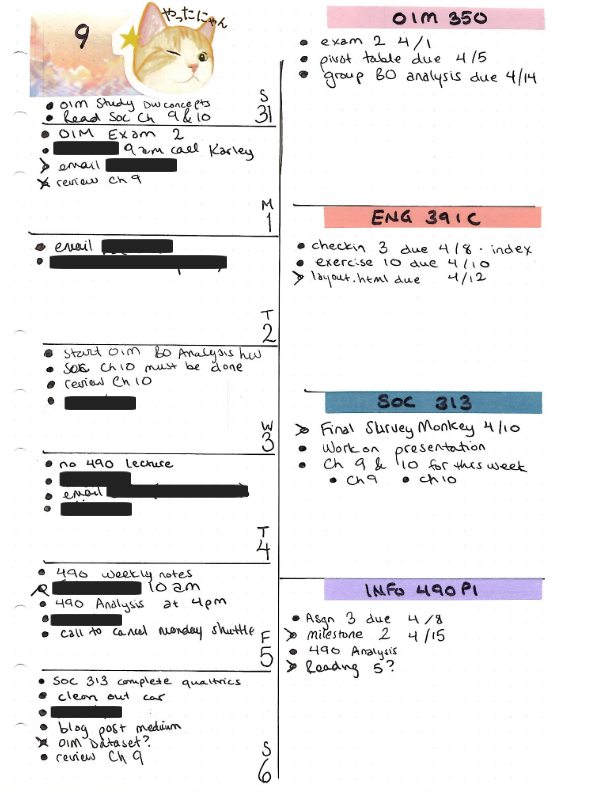 9
やったにゃん
OIM Study DW concepts
Read Soc Ch 9 & 10
S
31
OIM Exam 2
9am call Karley
email
review Ch 9
M
1
email
T
2
Start OIM BO Analysis hw
SOC Ch 10 must be done
review Ch 10
W
3
no 490 lecture
email
T
4
490 weekly notes
10 am
490 Analysis at 4pm
call to cancel monday shuttle
F
5
SOC 313 complete qualtrics
clean out car
blog post medium
OIM Dataset?
review Ch 9
S
6
OIM 350
exam 2 4/1
pivot table due 4/5
group BO analysis due 4/14
ENG 391C
checkin 3 due 4/8 · index
exercise 10 due 4/10
layout.html due 4/12
SOC 313
Final Survey Monkey 4/10
Work on presentation
Ch 9 & 10 for this week
Ch 9 Ch 10
INFO 490PI
Asgn 3 due 4/8
Milestone 2 4/15
490 Analysis
Reading 5?